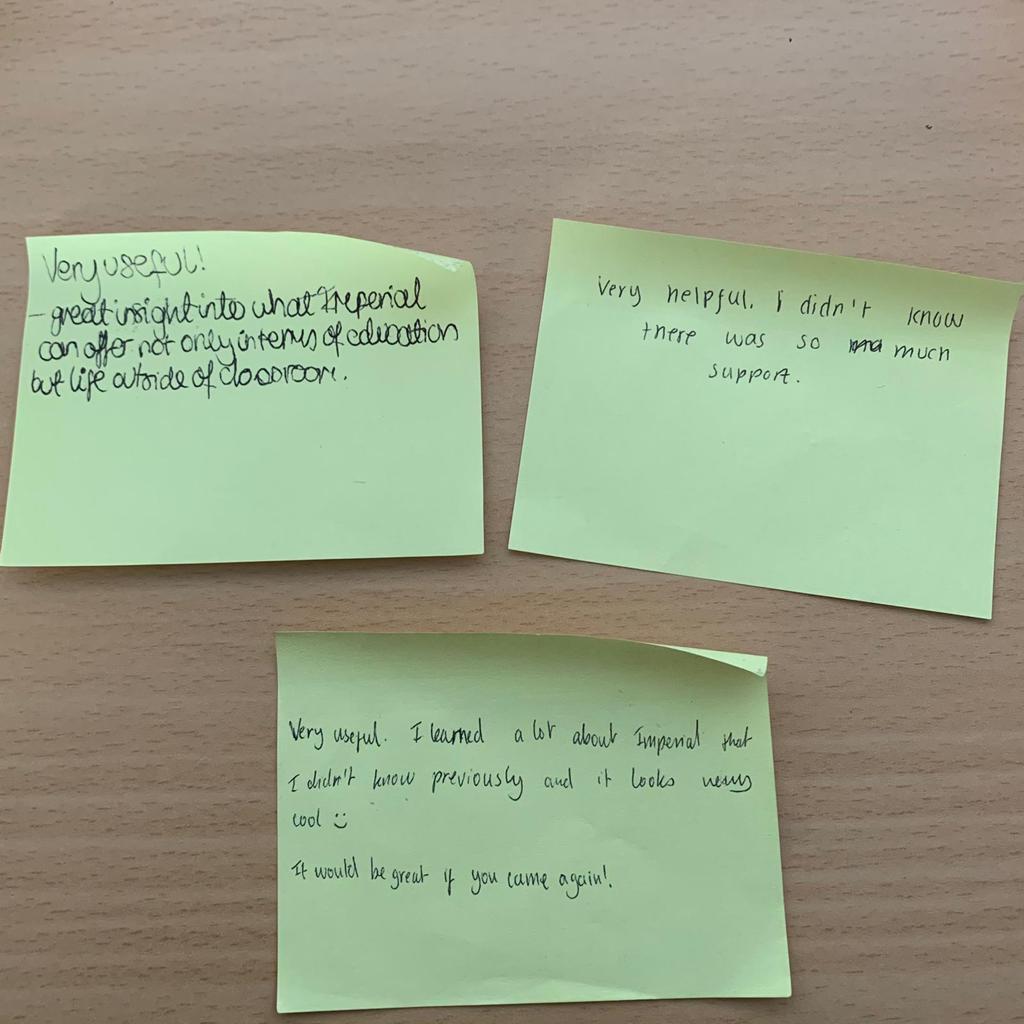 Very useful!
- great insight into what Imperial
can offer not only in terms of education
but life outside of classroom.
Very helpful. I didn't know
there was so much
support.
Very useful. I learned a lot about Imperial that
I didn't know previously and it looks
cool :)
It would be great if you came again!